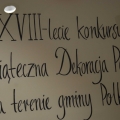 XVIII-lecie konkursu
iąteczna Dekoracja P
a terenie gminy Polk